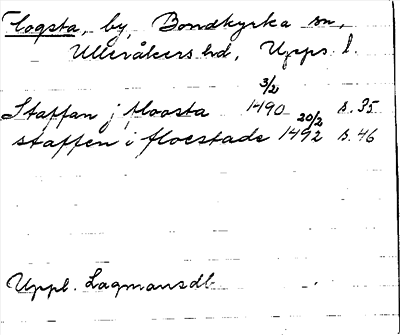 Flogsta, by, Bondkyrka sn,
Ulleråkers hd, Upps. l.
Staffan j floosta 1490 3/2 s. 35
staffen i floestade 1492 20/2 s. 46
Uppl. Lagmansdb.